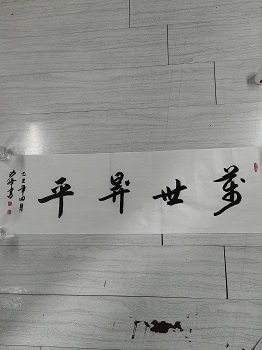 萬世昇平
乙巳年四月